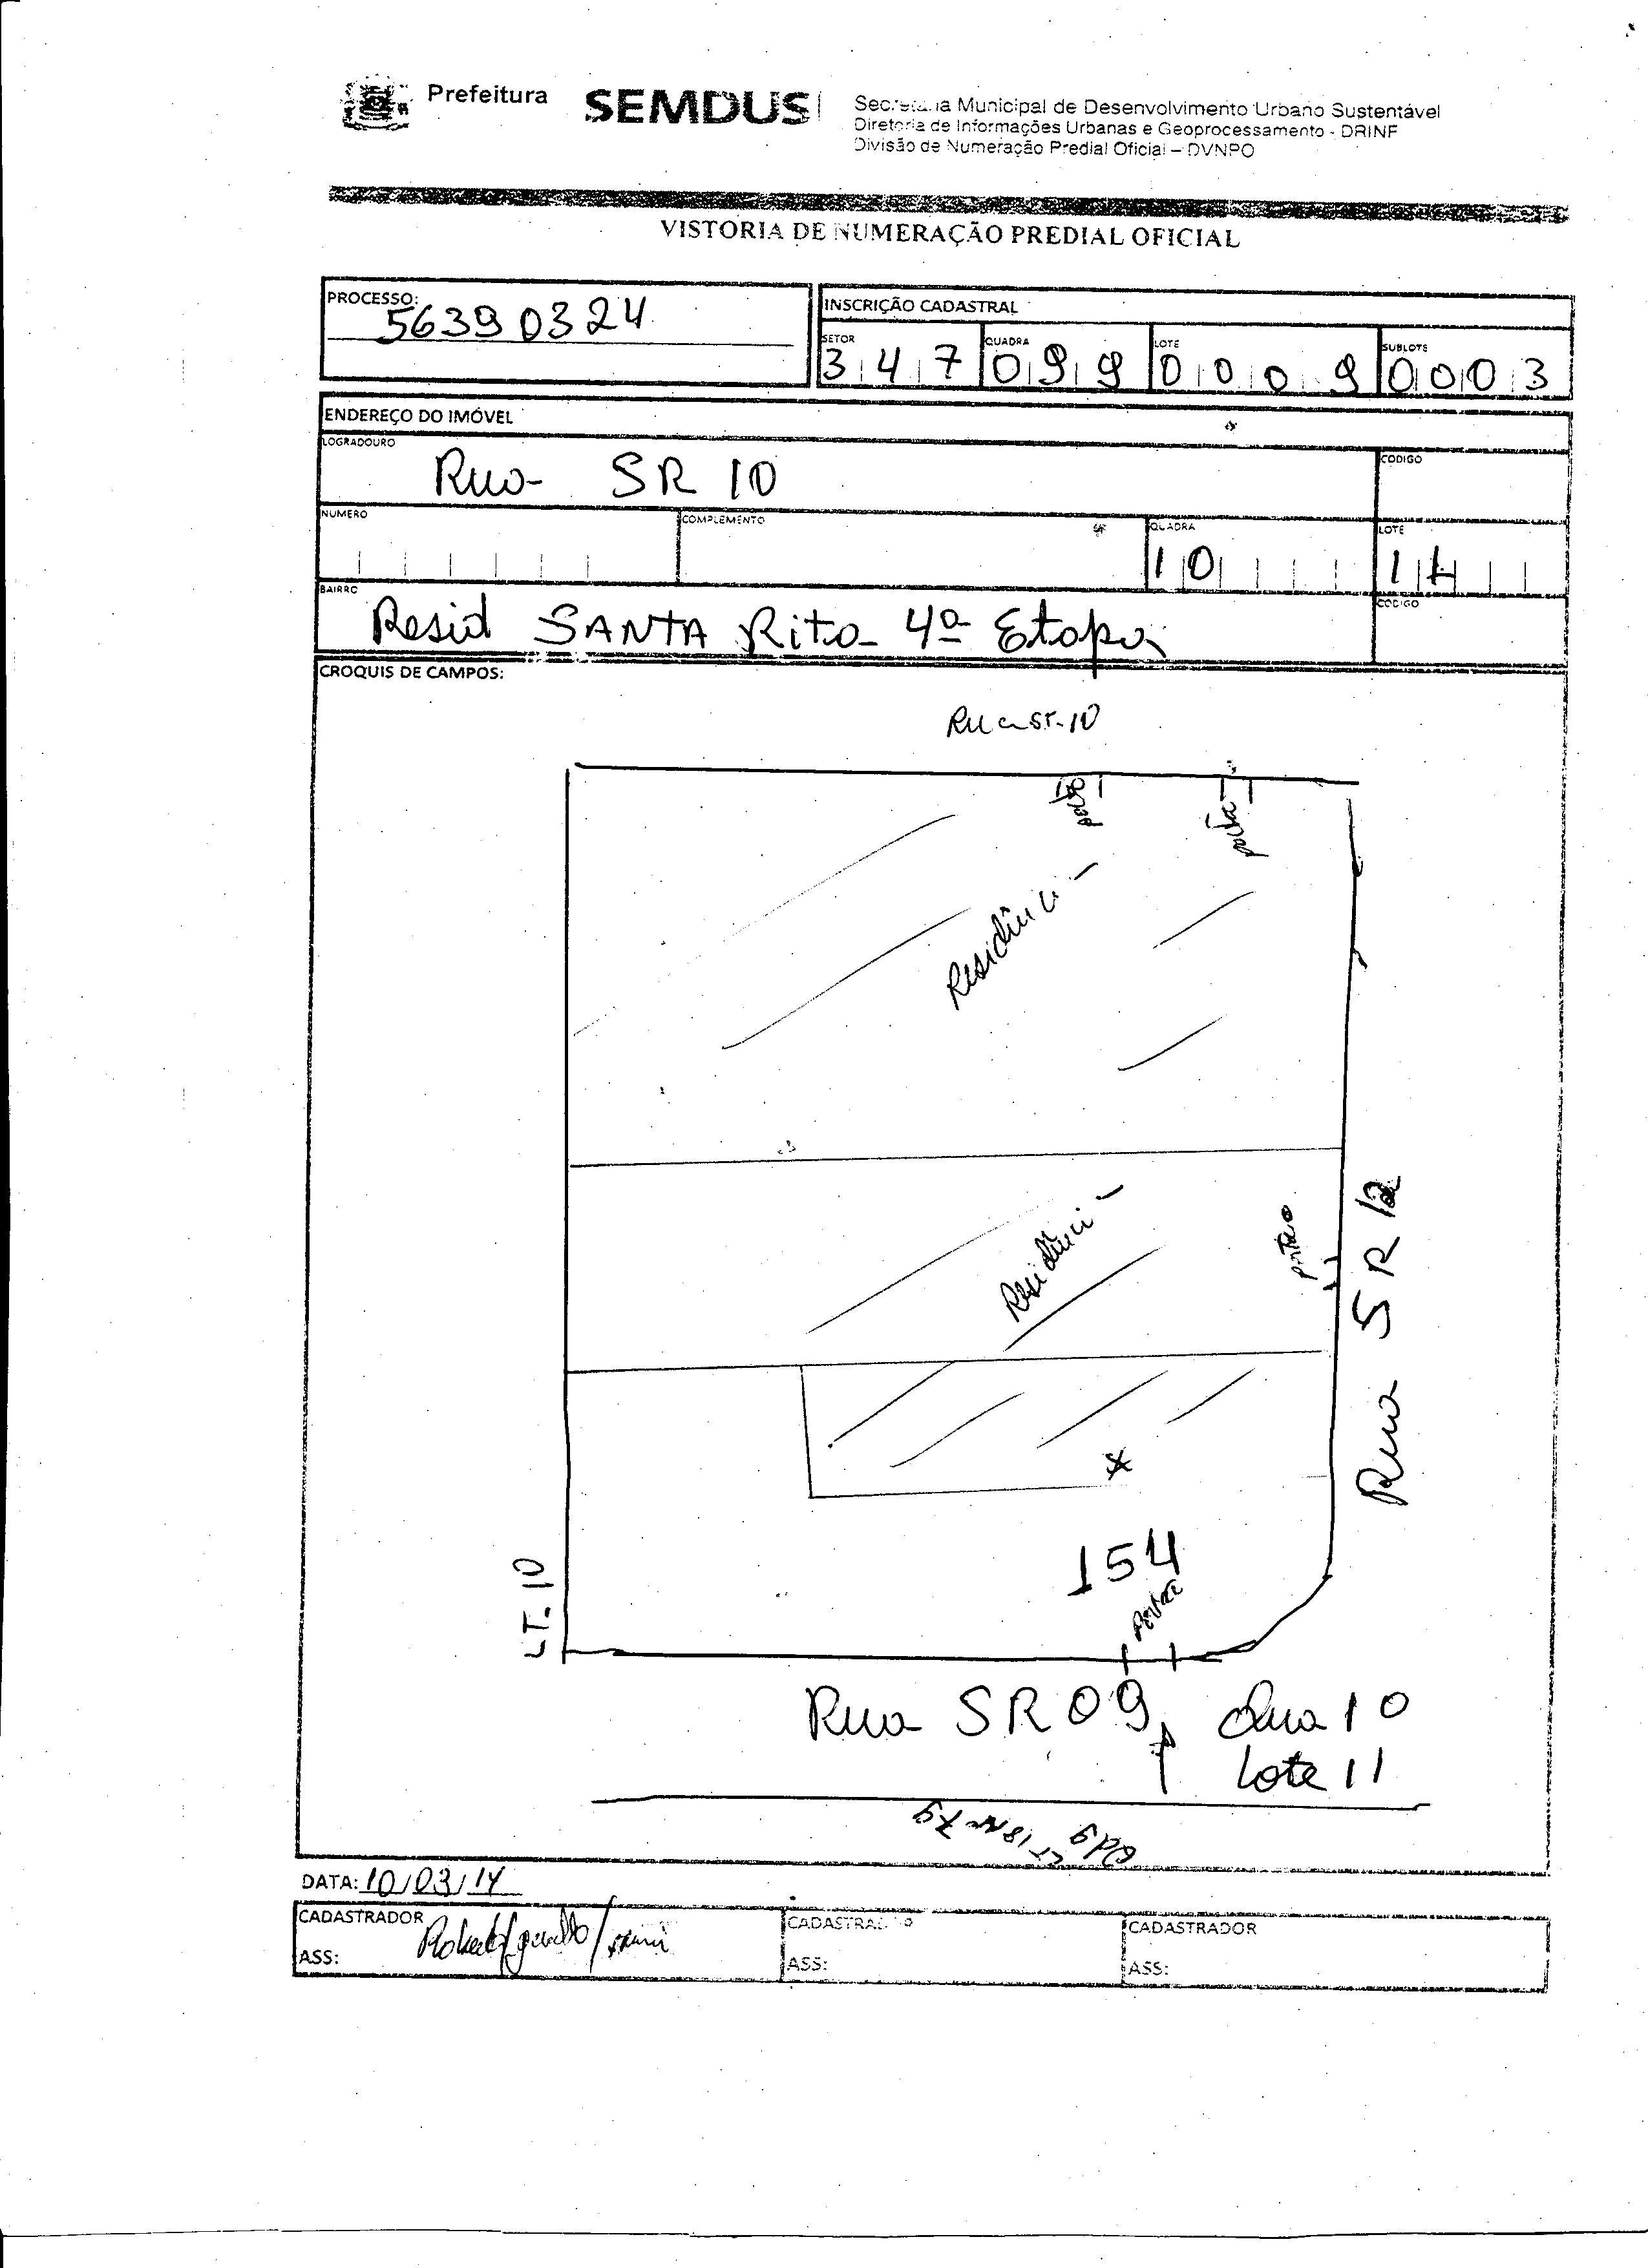 Prefeitura SEMDUS
Secretaria Municipal de Desenvolvimento Urbano Sustentável
Diretoria de Informações Urbanas e Geoprocessamento - DRINF
Divisão de Numeração Predial Oficial – DVNPO
VISTORIA DE NUMERAÇÃO PREDIAL OFICIAL
PROCESSO: 56390324
INSCRIÇÃO CADASTRAL
SETOR QUADRA LOTE SUBLOTE
347 099 0009 0003
ENDEREÇO DO IMÓVEL
LOGRADOURO CODIGO
Rua SR 10
NUMERO COMPLEMENTO QUADRA LOTE
10 11
BAIRRO CODIGO
Resid SANTA Rita 4ª Etapa
CROQUIS DE CAMPOS:
Rua SR-10
portão porta
Residência
Residência
portão
Rua SR 12
154
LT. 10
Rua SR 09 Qua 10
Lote 11
Qd 9 LT 18 Nr 79
DATA: 10/03/14
CADASTRADOR CADASTRADOR CADASTRADOR
ASS: ASS: ASS: